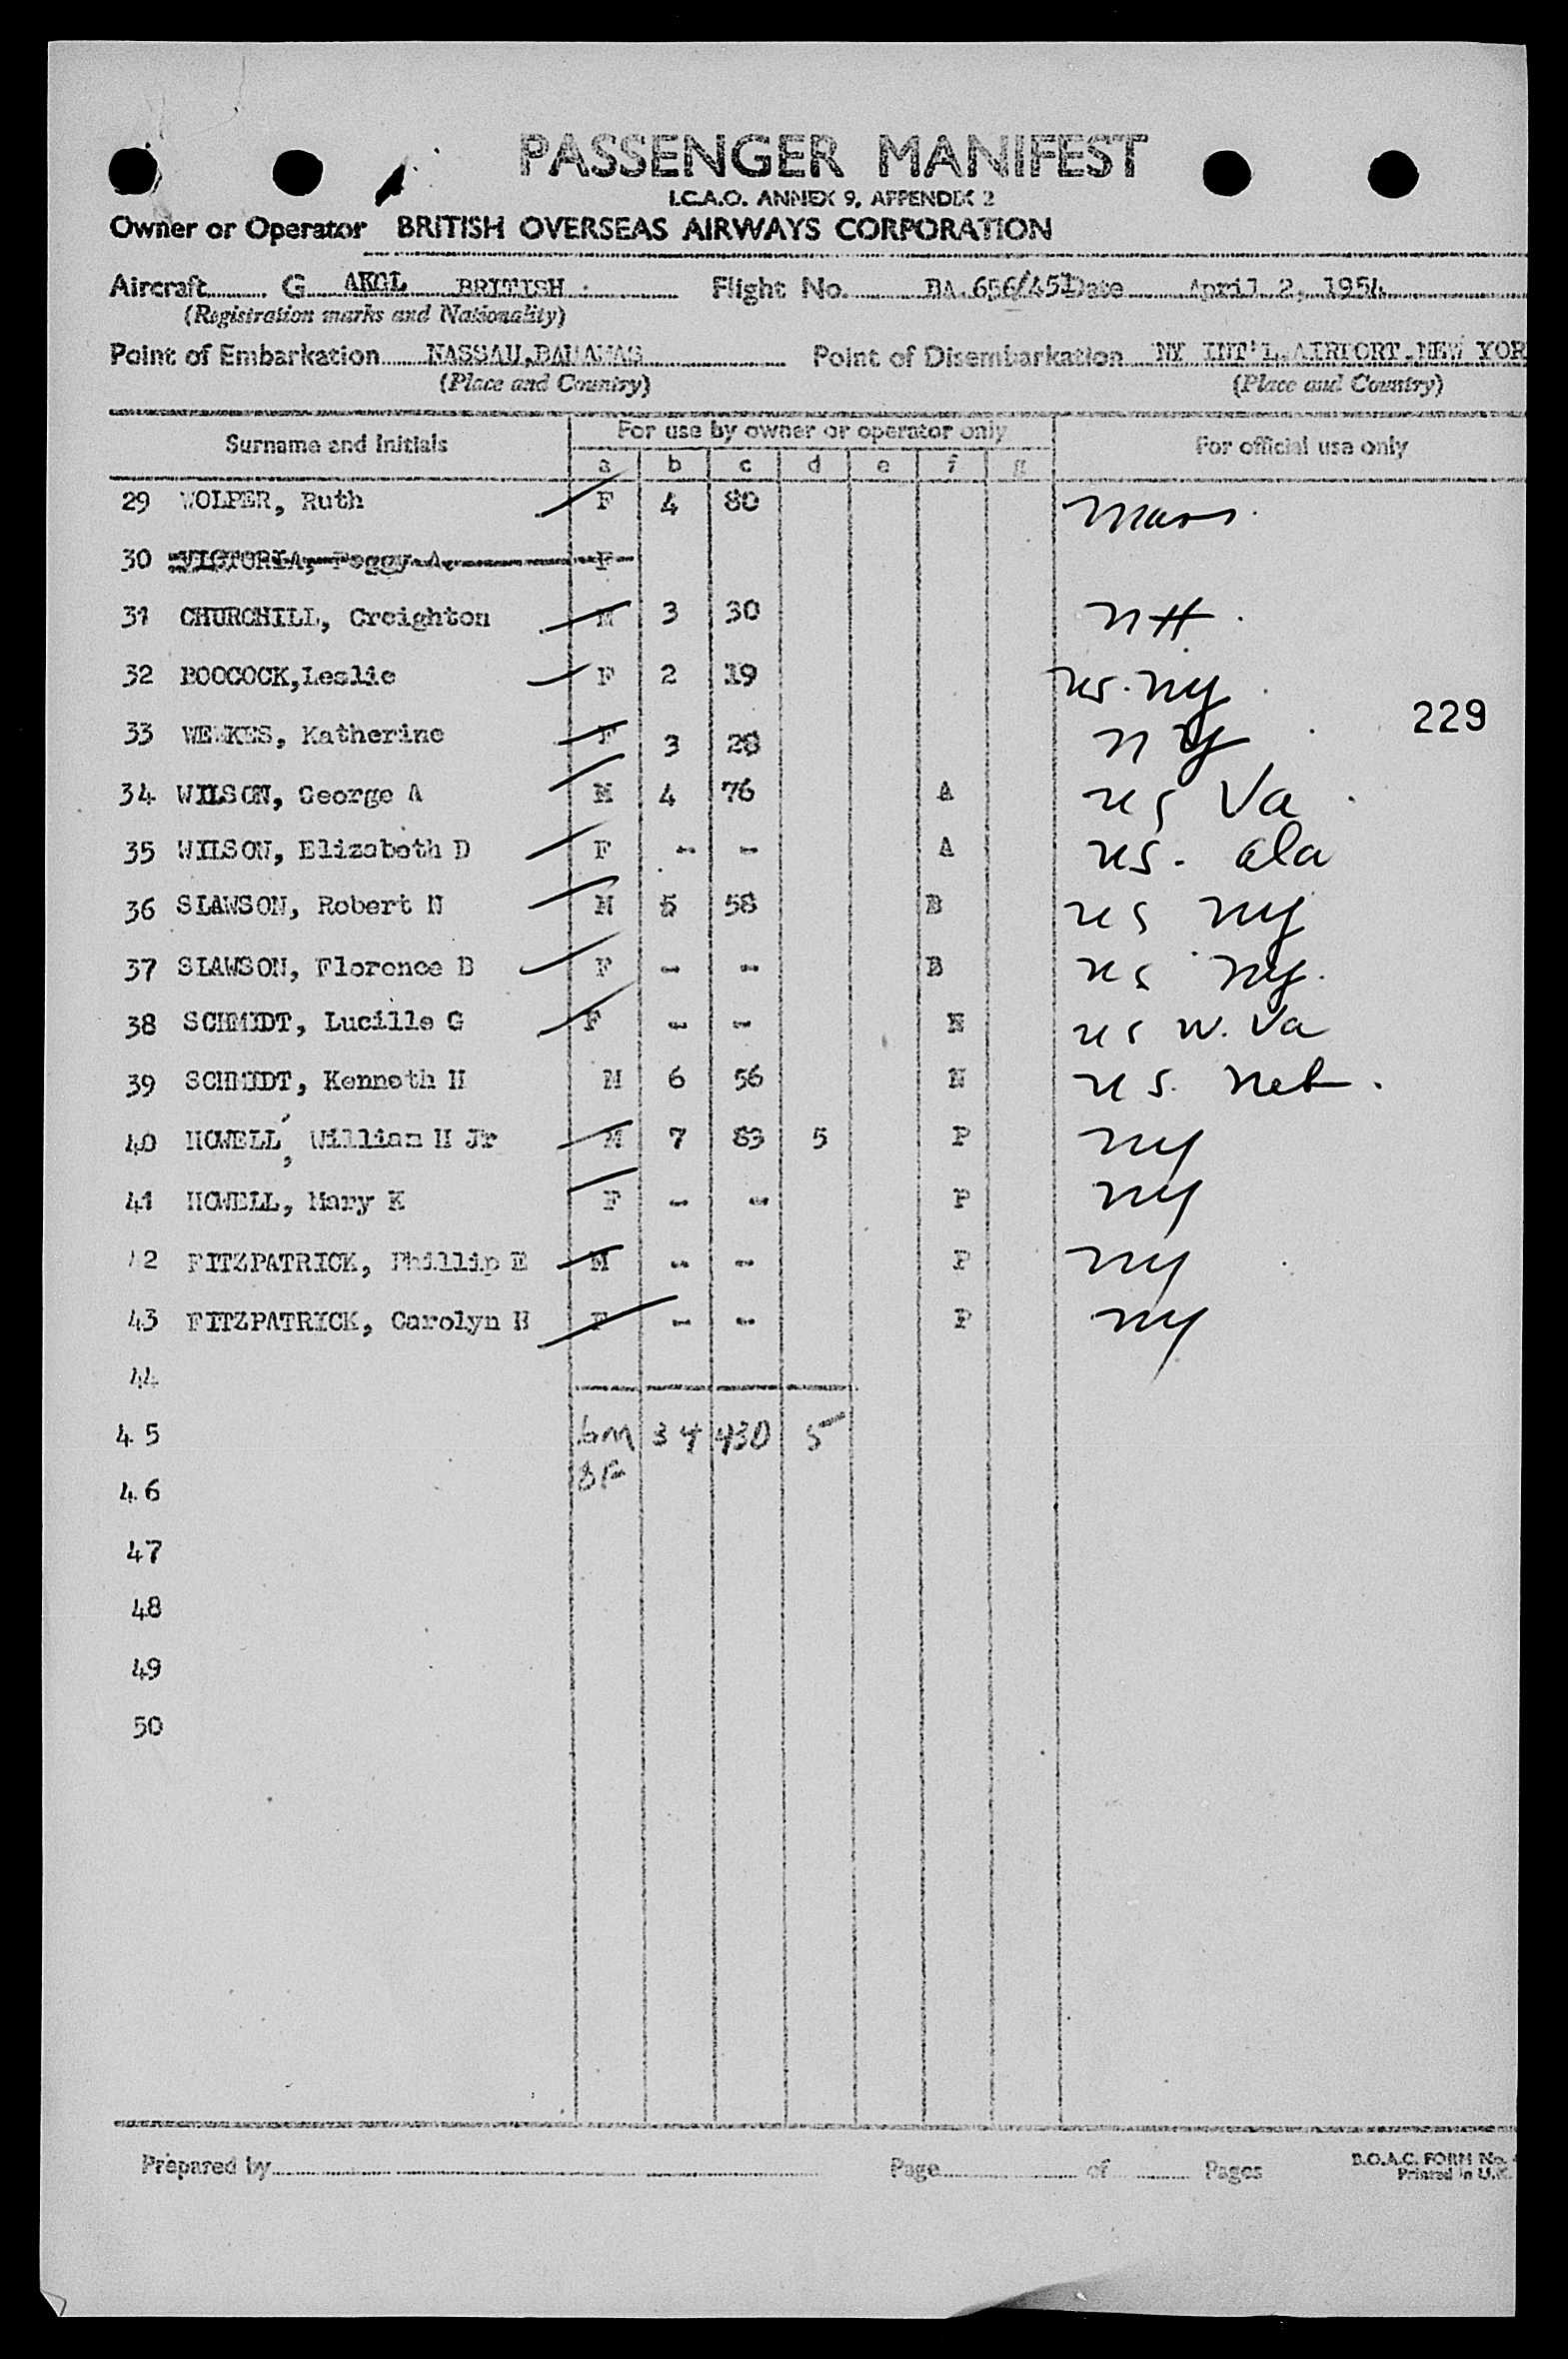 PASSENGER MANIFEST
I.C.A.O. ANNEX 9, APPENDIX 2
Owner or Operator BRITISH OVERSEAS AIRWAYS CORPORATION
Aircraft G AKGL BRITISH Flight No. BA 656/451 Date April 2, 1954
(Registration marks and Nationality)
Point of Embarkation NASSAU, BAHAMAS Point of Disembarkation NY INT'L. AIRPORT, NEW YOR
(Place and Country) (Place and Country)
Surname and Initials For use by owner or operator only For official use only
a b c d e f g
29 WOLPER, Ruth F 4 80 Mass.
30 VICTORIA, Peggy A. F
31 CHURCHILL, Creighton M 3 30 NH.
32 BOOCOCK, Leslie F 2 19 US. NY
33 WEEKES, Katherine F 3 28 NY 229
34 WILSON, George A M 4 76 A US Va
35 WILSON, Elizabeth D F - - A US. Ala
36 SLAWSON, Robert N M 5 58 B US NY
37 SLAWSON, Florence B F - - B US NY.
38 SCHMIDT, Lucille G F - - N US W. Va
39 SCHMIDT, Kenneth H M 6 56 N US. Neb.
40 HOWELL, William H Jr M 7 83 5 P NY
41 HOWELL, Mary K F - - P NY
42 FITZPATRICK, Phillip E M - - P NY
43 FITZPATRICK, Carolyn H F - - P NY
44
45 6M 34 430 5
46 8F
47
48
49
50
Prepared by Page of Pages B.O.A.C. FORM No.
Printed in U.K.